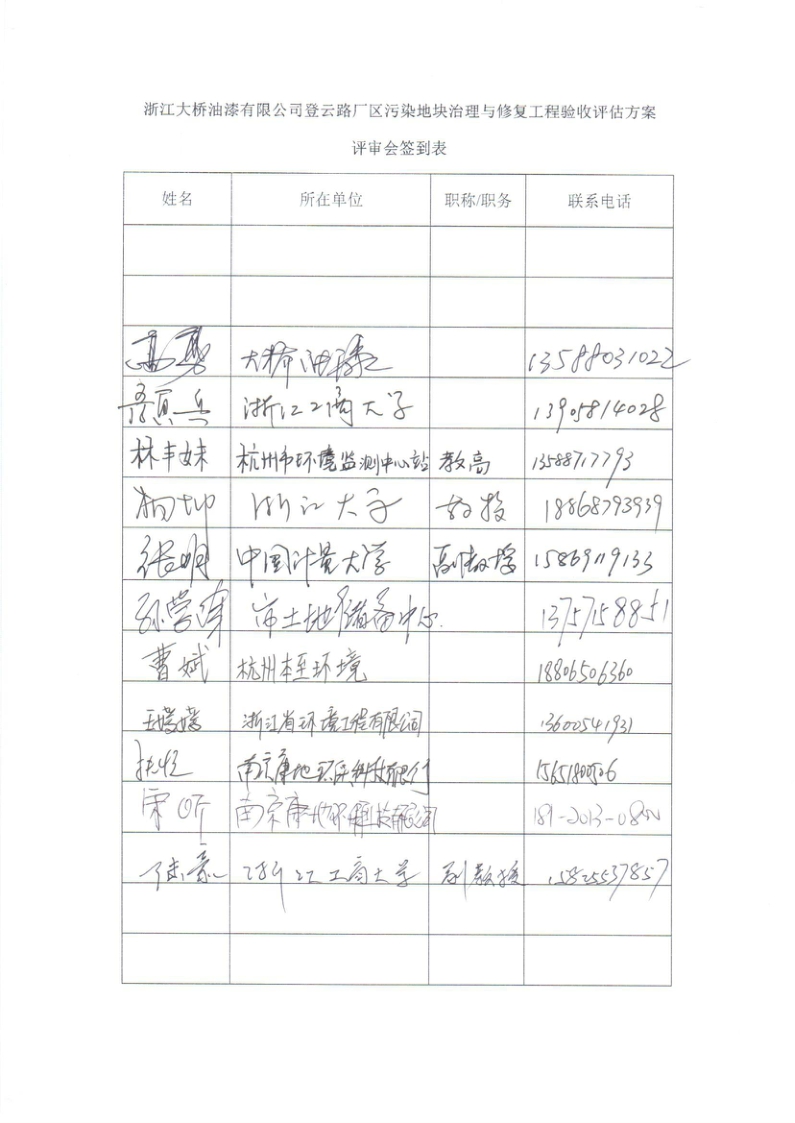 浙江大桥油漆有限公司登云路厂区污染地块治理与修复工程验收评估方案
评审会签到表
姓名 所在单位 职称/职务 联系电话
大桥油漆 13588031022
浙江工商大学 13905814028
林丰妹 杭州市环境监测中心站 教高 13588717793
杨坤 浙江大学 教授 18868793939
张明 中国计量大学 副教授 15869119133
孙营 市土地储备中心 13757158851
曹斌 杭州本至环境 18806506360
王嫣嫣 浙江省环境工程有限公司 13600541931
南京康地环保科技有限公司 15651800506
宋昕 南京康地环保科技有限公司
陆豪 浙江工商大学 副教授 15825537857